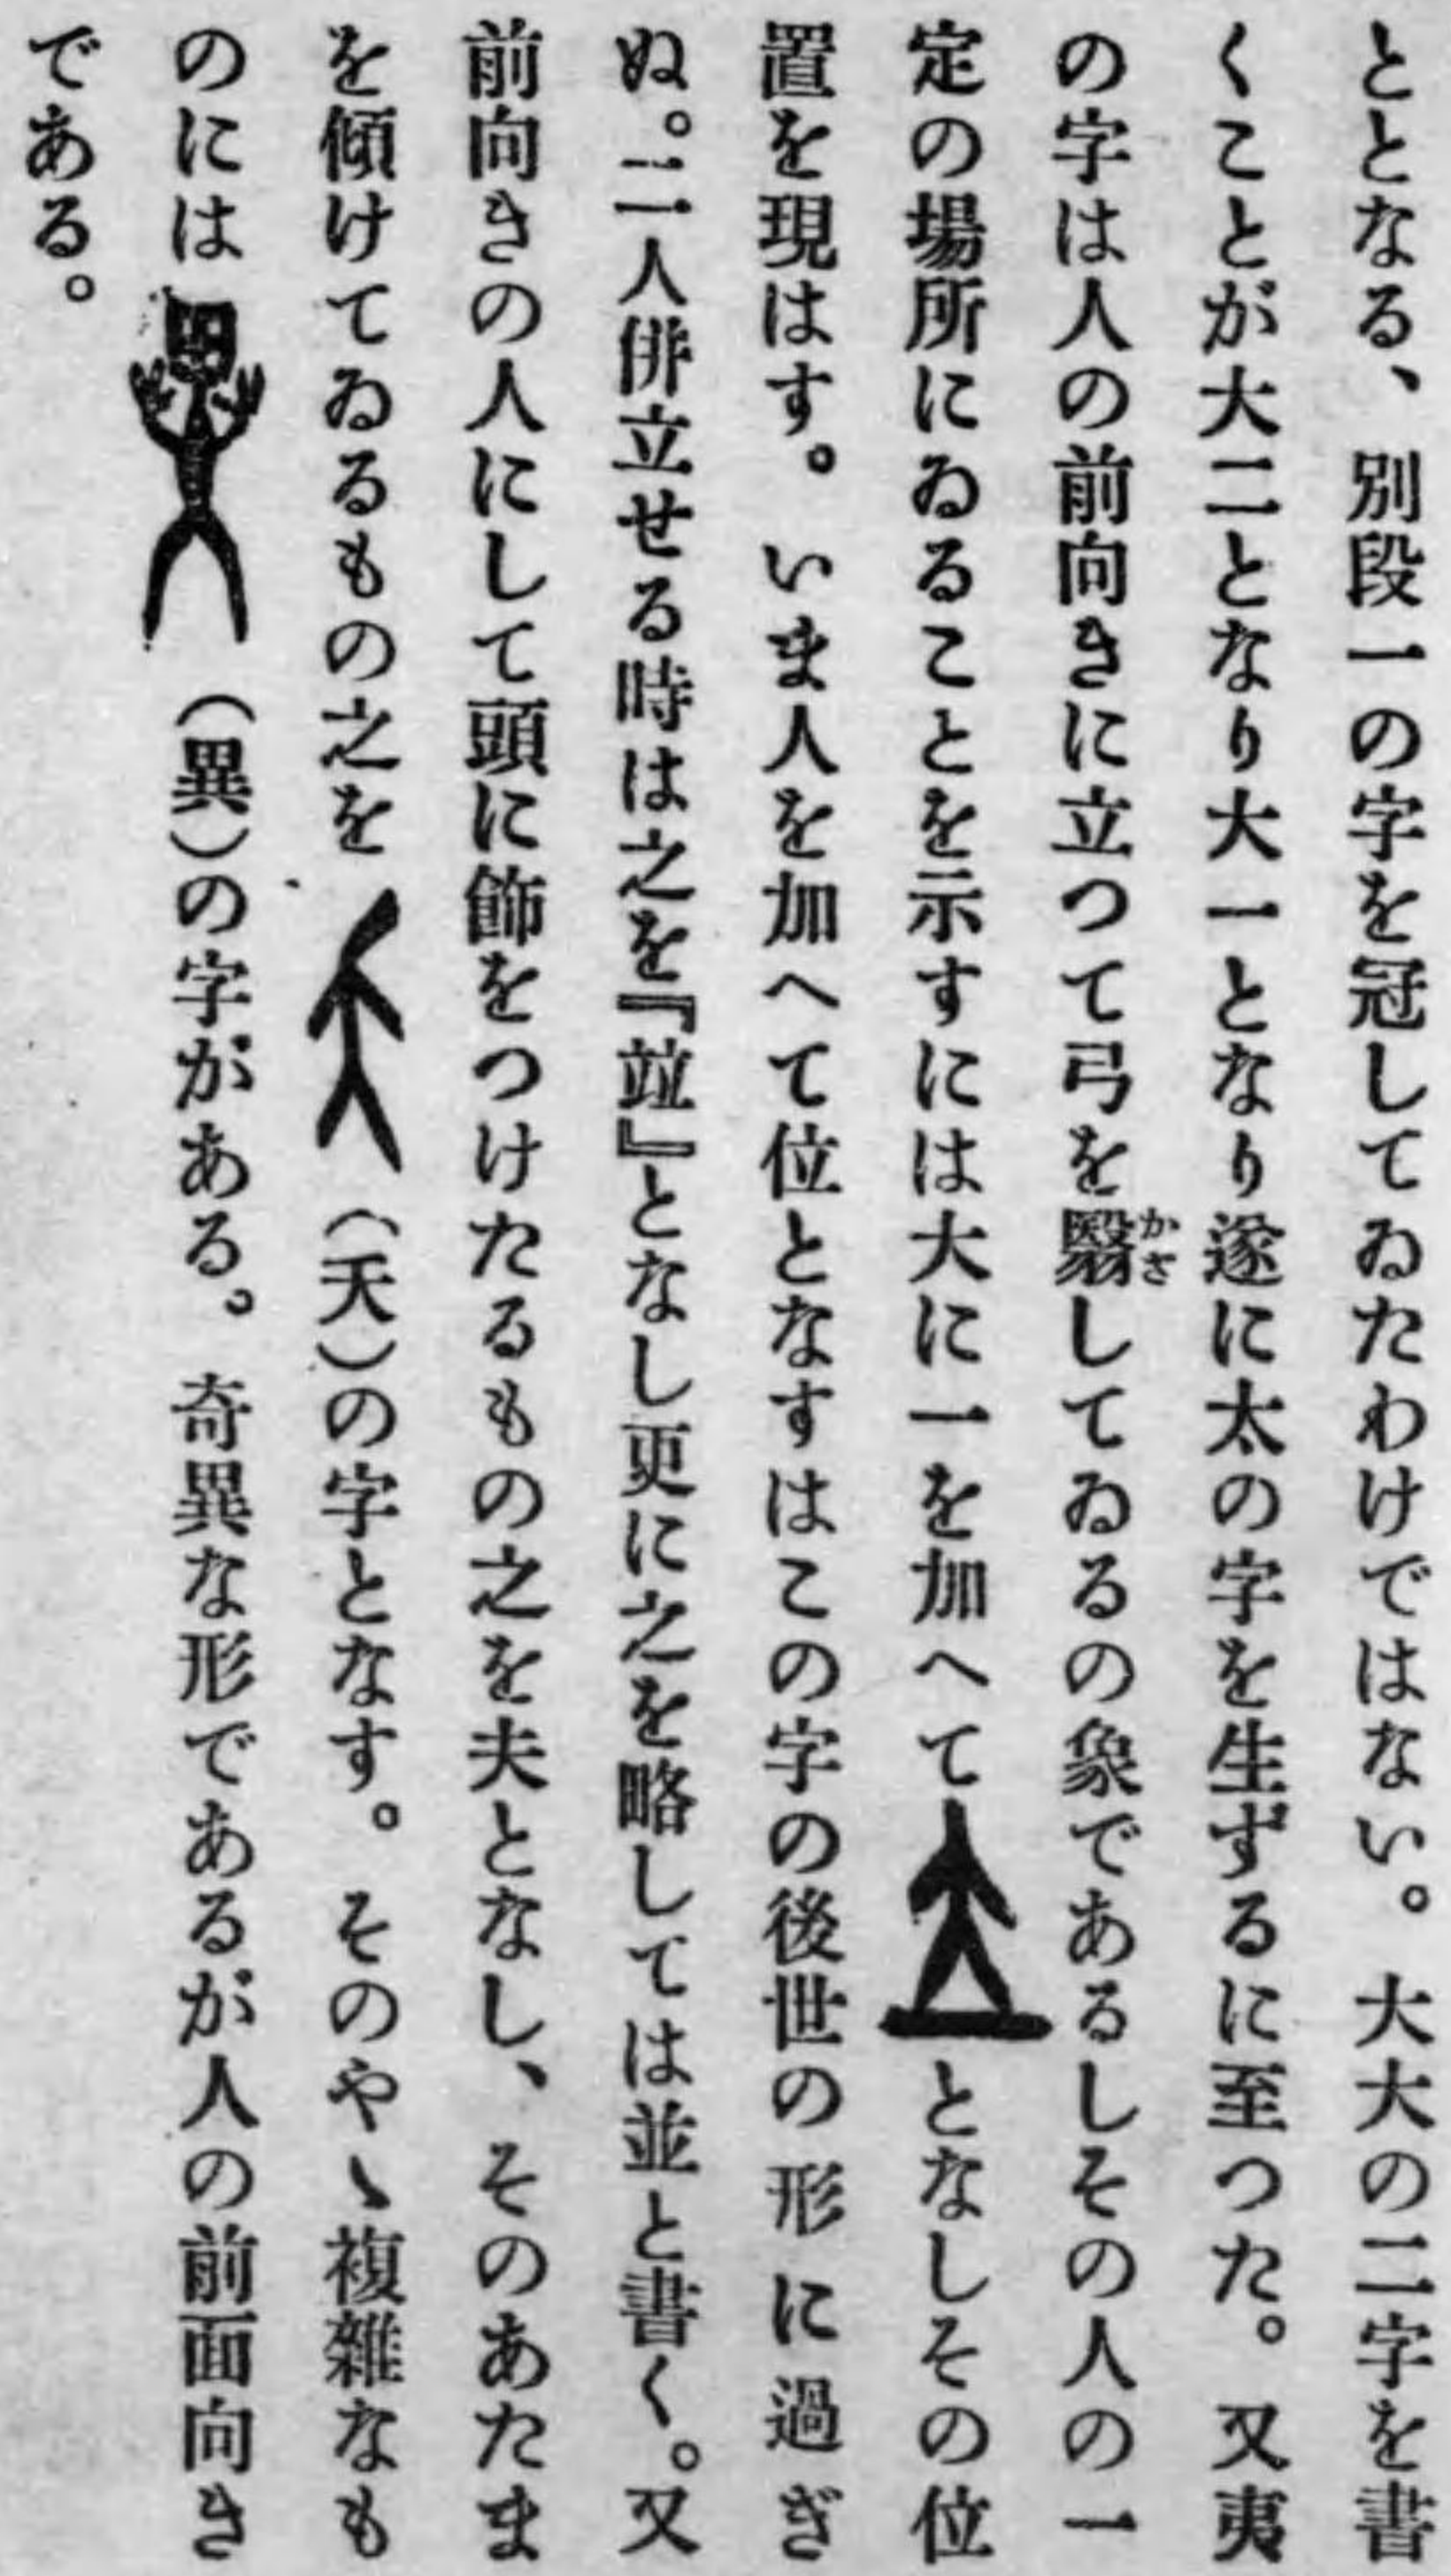 ととなる、別段一の字を冠してゐたわけではない。大大の二字を書
くことが大二となり大一となり遂に太の字を生ずるに至つた。又夷
の字は人の前向きに立つて弓を翳かざしてゐるの象であるしその人の一
定の場所にゐることを示すには大に一を加へてとなしその位
置を現はす。いま人を加へて位となすはこの字の後世の形に過ぎ
ぬ。二人俳立せる時は之を『竝』となし更に之を略しては並と書く。又
前向きの人にして頭に飾をつけたるもの之を夫となし、そのあたま
を傾けてゐるもの之を（天）の字となす。そのやゝ複雑なも
のには（異）の字がある。奇異な形であるが人の前面向き
である。